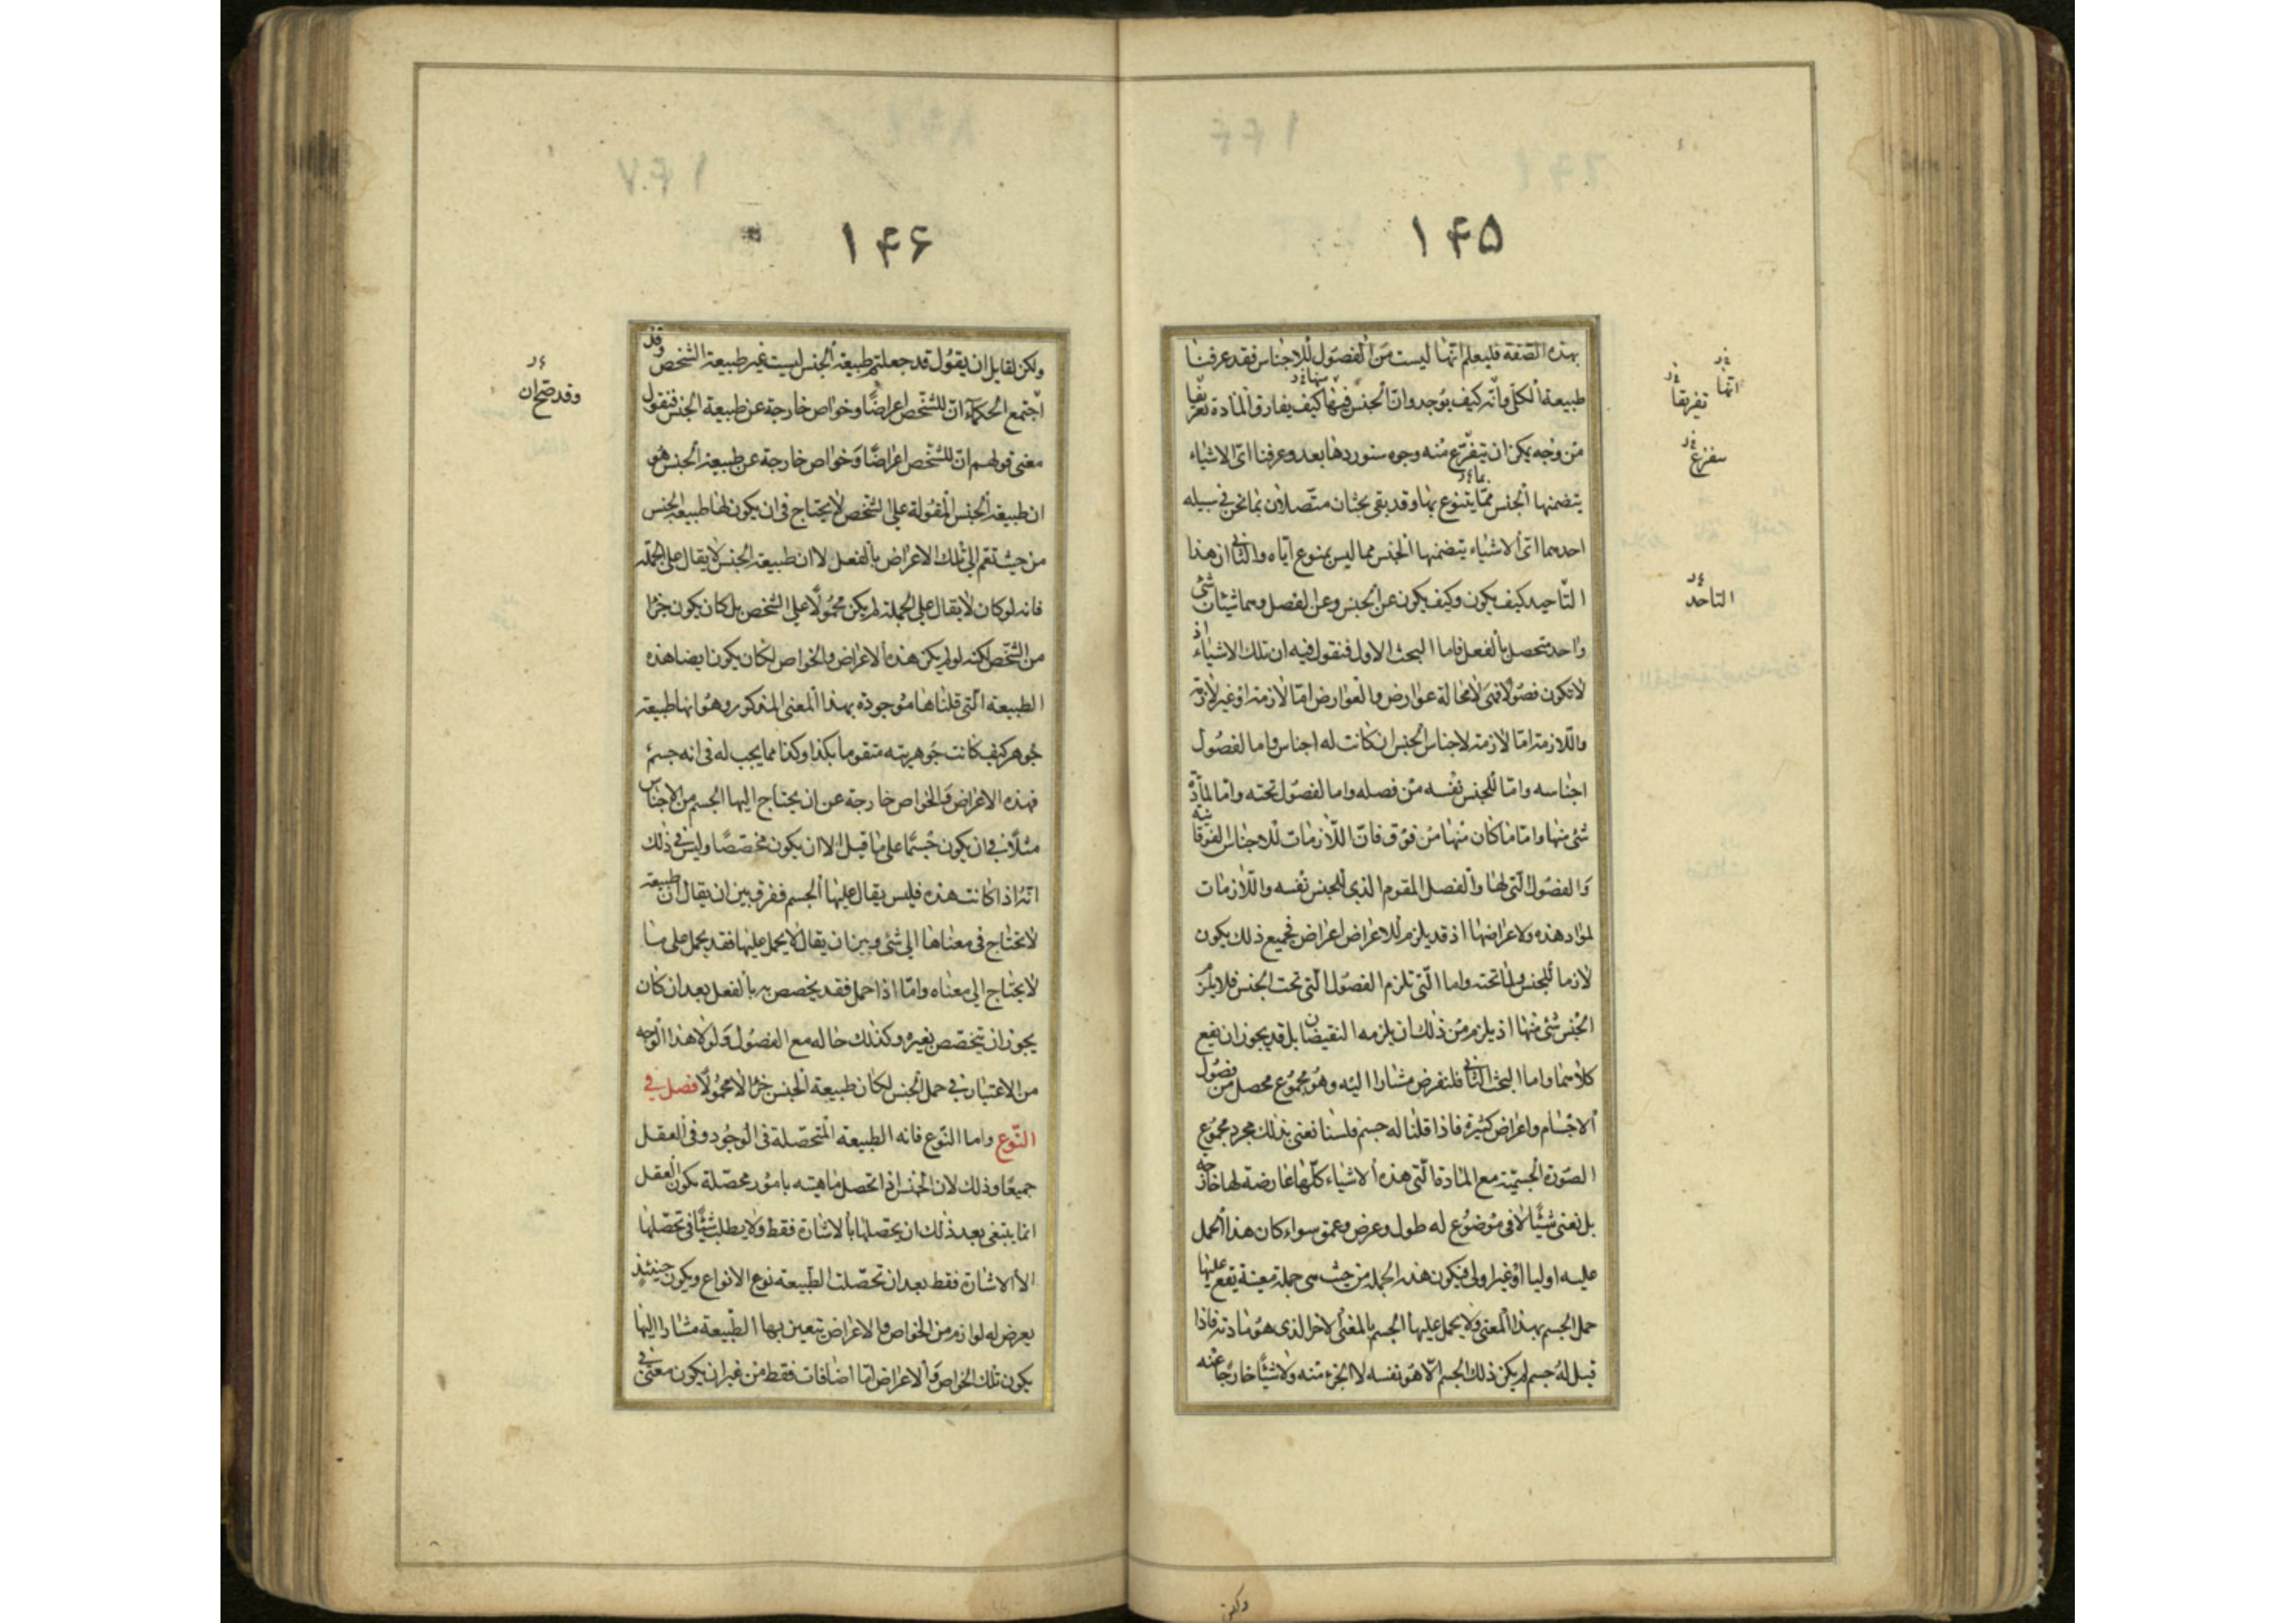 ١۴۵
بهذه الصفة فليعلم انها ليست من الفصول للاجناس فقد عرفنا
طبيعة الكلى وانه كيف يوجد وان الجنس فيها كيف يفارق المادة تعريفا
من وجه يمكن ان يتفرع منه وجوه سنوردها بعد وعرفنا اى الاشياء
يتضمنها الجنس مما يتنوع بها وقد بقى بحثان متصلان بما نحن فى سبيله
احدهما اى الاشياء يتضمنها الجنس مما ليس بمنوع اياه والثانى ان هذا
التاحيد كيف يكون وكيف يكون عن الجنس وعن الفصل وهما شيئان شئ
واحد متحصل بالفعل فاما البحث الاول فنقول فيه ان تلك الاشياء اذ
لا تكون فصولا فهى لا محالة عوارض والعوارض اما لازمة او غير لازمة
واللازمة اما لازمة لاجناس الجنس ان كانت له اجناس واما لفصول
اجناسه واما للجنس نفسه من فصله واما لفصول تحته واما لمادة
شئ منها واما ما كان منها من فوق فان اللازمات للاجناس الفوقانية
والفصول التى لها والفصل المقوم الذى للجنس نفسه واللازمات
لمواد هذه ولاعراضها اذ قد يلزم للاعراض اعراض فجميع ذلك يكون
لازما للجنس ولما تحته واما التى تلزم الفصول التى تحت الجنس فلا يلزم
الجنس شئ منها اذ يلزم من ذلك ان يلزمه النقيضان بل قد يجوز ان يقع
كلاهما واما البحث الثانى فلنفرض مشارا اليه وهو مجموع محصل من فصول
الاجسام واعراض كثيرة فاذا قلنا له جسم فلسنا نعنى بذلك مجرد مجموع
الصورة الجسمية مع المادة التى هذه الاشياء كلها عارضة لها خارجة
بل نعنى شيئا لا فى موضوع له طول وعرض وعمق سواء كان هذا الحمل
عليه اوليا او غير اولى فيكون هذه الجملة من حيث هى جملة معينة يقع عليها
حمل الجسم بهذا المعنى ولا يحمل عليها الجسم بالمعنى الاخر الذى هو مادته فاذا
قيل له جسم لم يكن ذلك الجسم الا هو نفسه لا الجزء منه ولا شيئا خارجا عنه
انها
تفريقا
سفزع
التاحد
ولكن
١۴۶
ولكن لقايل ان يقول قد جعلتم طبيعة الجنس ليست غير طبيعة الشخص وقد
اجتمع الحكماء ان للشخص اعراضا وخواص خارجة عن طبيعة الجنس فنقول
معنى قولهم ان للشخص اعراضا وخواص خارجة عن طبيعة الجنس هو
ان طبيعة الجنس المقولة على الشخص لا يحتاج فى ان يكون لها طبيعة الجنس
من حيث تعم الى تلك الاعراض بالفعل لا ان طبيعة الجنس لا يقال على الجملة
فانه لو كان لا يقال على الجملة لم يكن محمولا على الشخص بل كان يكون جزءا
من الشخص لكنه لو لم يكن هذه الاعراض والخواص لكان يكون ايضا هذه
الطبيعة التى قلناها موجودة بهذا المعنى المذكور وهو انها طبيعة
جوهر كيف كانت جوهريته متقوما بكذا وكذا مما يجب له فى انه جسم
فهذه الاعراض والخواص خارجة عن ان يحتاج اليها الجسم من الاجناس
مثلا فى ان يكون جسما على ما قيل الا ان يكون مخصصا وليس فى ذلك
انه اذا كانت هذه فليس يقال عليها الجسم ففرق بين ان يقال ان طبيعة
لا تحتاج فى معناها الى شئ وبين ان يقال لا يحمل عليها فقد يحمل على ما
لا يحتاج الى معناه واما اذا حمل فقد يخصص به بالفعل بعد ان كان
يجوز ان يتخصص بغيره وكذلك حاله مع الفصول ولولا هذا الوجه
من الاعتبار فى حمل الجنس لكان طبيعة الجنس جزءا لا محمولا فصل فى
النوع واما النوع فانه الطبيعة المتحصلة فى الوجود وفى العقل
جميعا وذلك لان الجنس اذا تحصل ماهيته بامور محصلة يكون العقل
انما ينبغى بعد ذلك ان يحصلها بالاشارة فقط ولا يطلب شيئا فى تحصلها
الا الاشارة فقط بعد ان تحصلت الطبيعة نوع الانواع ويكون حينئذ
يعرض له لوازم من الخواص والاعراض تتعين بها الطبيعة مشارا اليها
يكون تلك الخواص والاعراض اما اضافات فقط من غير ان يكون معنى فى
وقد صح ان